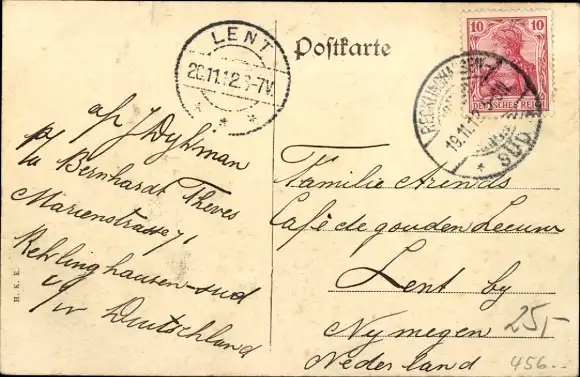 Postkarte
LENT
20.11.12.
10 10
DEUTSCHES REICH
RECKLINGHAUSEN
19.11.12
SÜD
p/a Bernhardt Theves
Marienstrasse 71
Reklinghausen-sud
i/w Deutschland
Familie Arends
Café de gouden Leeuw
Lent by
Nymegen
Nederland
25,-
456..
H. K. E.